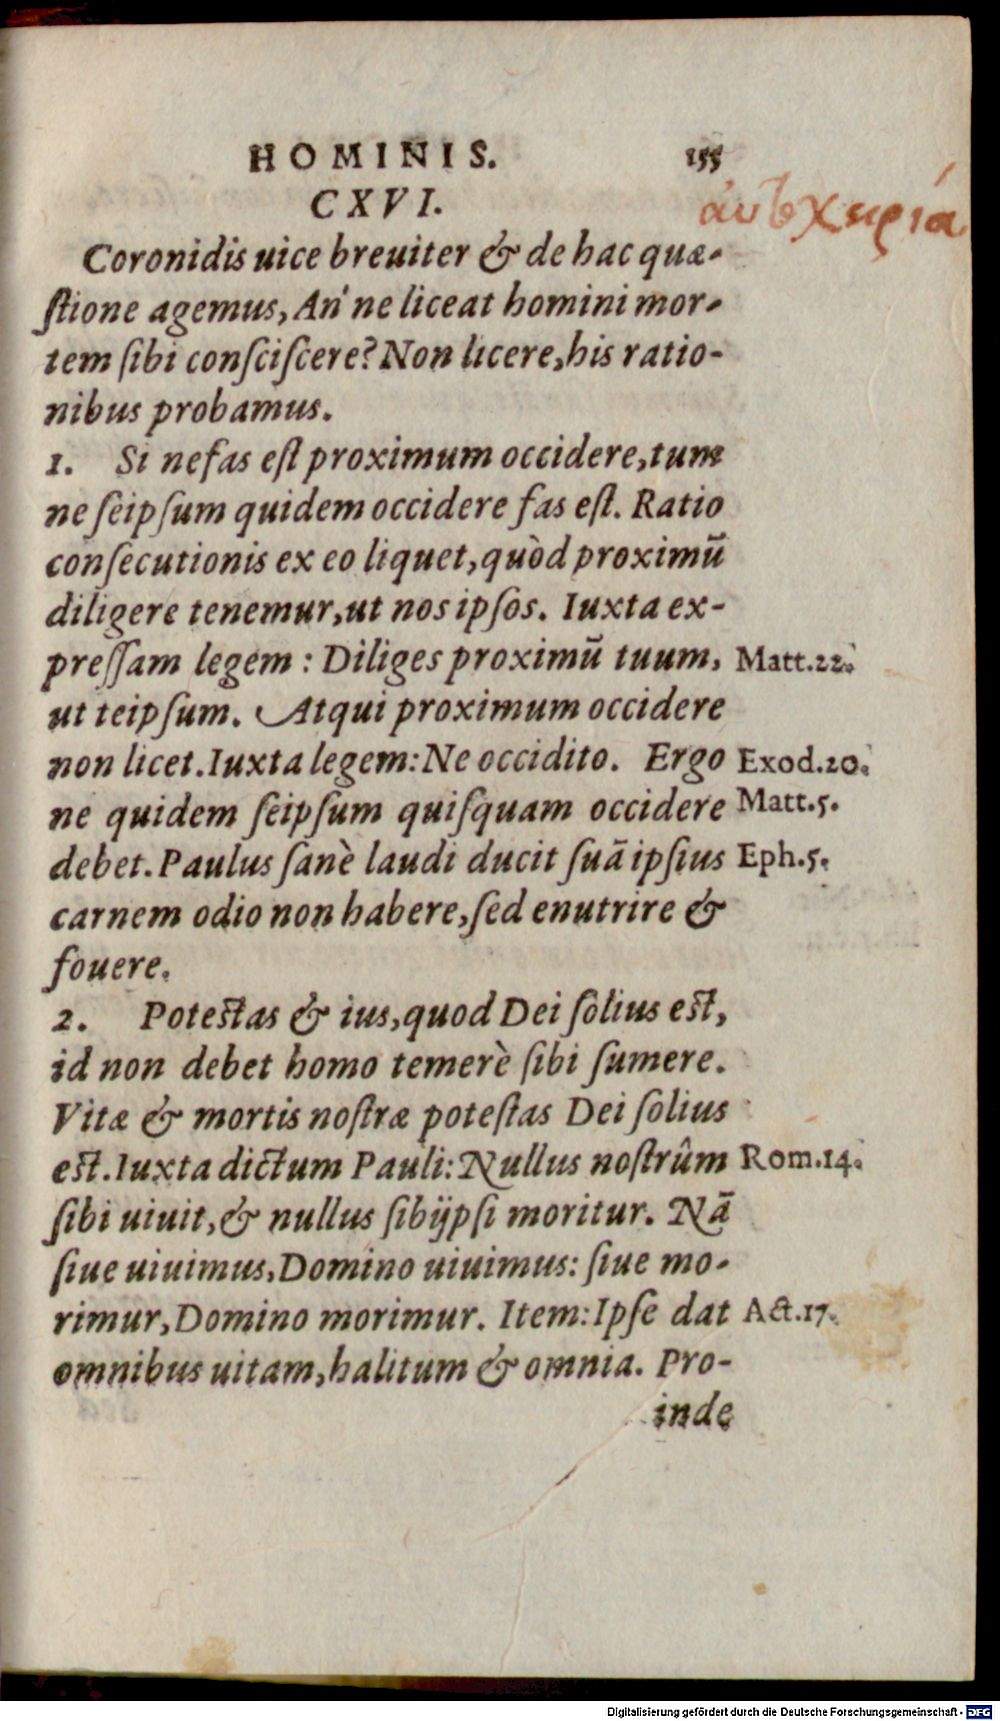 HOMINIS. 155
CXVI.
αὐτοχειρία
Coronidis uice breuiter & de hac quæ-
ſtione agemus, An' ne liceat homini mor-
tem ſibi conſciſcere? Non licere, his ratio-
nibus probamus.
1. Si nefas eſt proximum occidere, tum
ne ſeipſum quidem occidere fas eſt. Ratio
conſecutionis ex eo liquet, quòd proximū
diligere tenemur, ut nos ipſos. Iuxta ex-
preſſam legem: Diliges proximū tuum, Matt.22.
ut teipſum. Atqui proximum occidere
non licet. Iuxta legem: Ne occidito. Ergo Exod.20.
ne quidem ſeipſum quiſquam occidere Matt.5.
debet. Paulus ſanè laudi ducit ſuā ipſius Eph.5.
carnem odio non habere, ſed enutrire &
fouere.
2. Poteſtas & ius, quod Dei ſolius eſt,
id non debet homo temerè ſibi ſumere.
Vitæ & mortis noſtræ poteſtas Dei ſolius
eſt. Iuxta dictum Pauli: Nullus noſtrûm Rom.14.
ſibi uiuit, & nullus ſibijpſi moritur. Nā
ſiue uiuimus, Domino uiuimus: ſiue mo-
rimur, Domino morimur. Item: Ipſe dat Act.17.
omnibus uitam, halitum & omnia. Pro-
inde
Digitalisierung gefördert durch die Deutsche Forschungsgemeinschaft - DFG